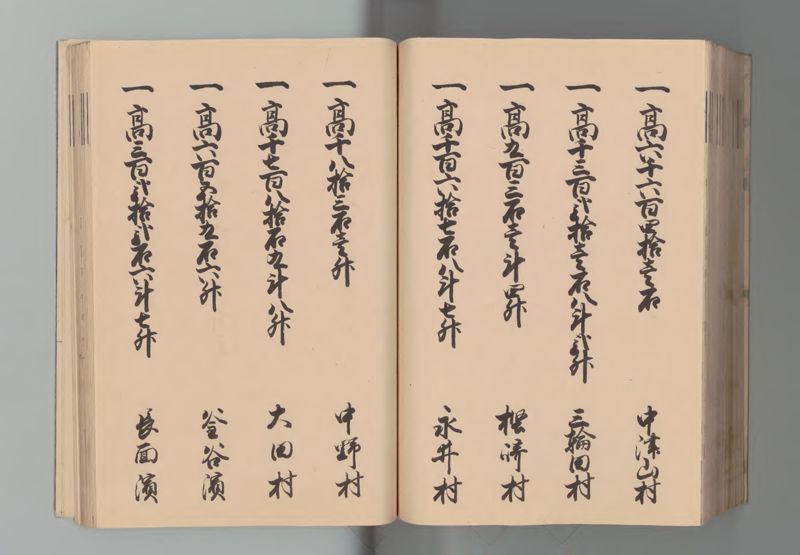 一高六千六百四拾壱石 中津山村
一高千三百弐拾壱石八斗弐升 三輪田村
一高九百三石壱斗四升 樫崎村
一高千百六拾七石八斗七升 永井村
一高千八拾三石壱升 中野村
一高千七百八拾石九斗八升 大田村
一高六百五拾九石六升 釜谷濱
一高三百弐拾弐石六斗七升 長面濱